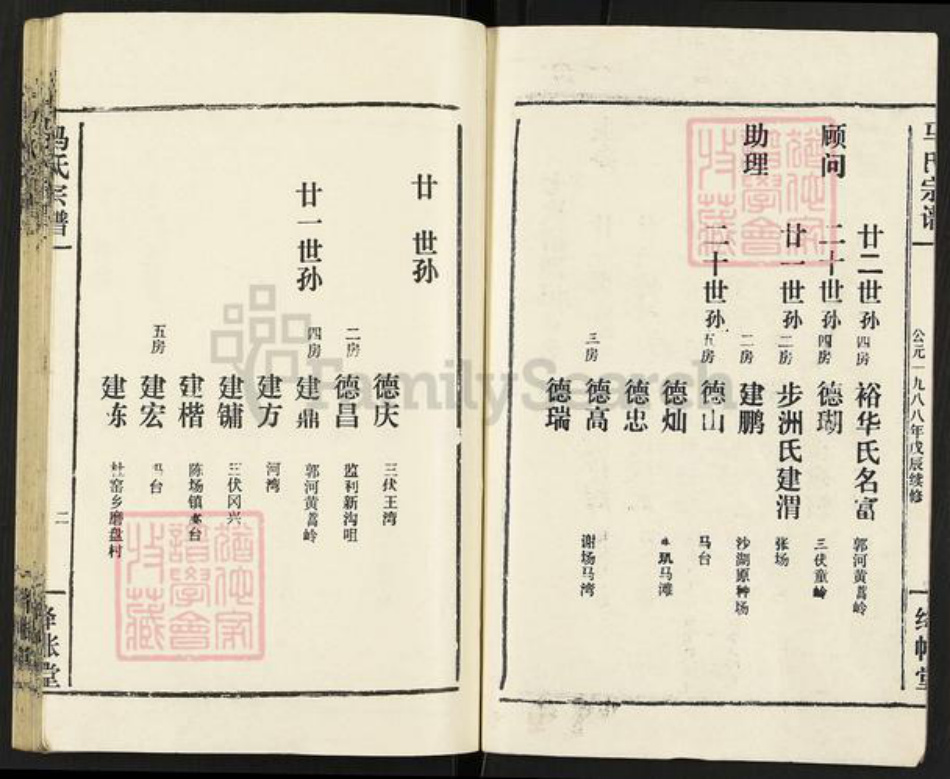 马氏宗谱
公元一九八八年戊辰续修
绛帐堂
顾问
廿二世孙 四房 裕华氏名富 郭河黄蒿岭
二十世孙 四房 德瑚 三伏童岭
助理
廿一世孙 二房 步洲氏建渭 张场
二房 建鹏 沙湖原种场
二十世孙 五房 德山 马台
德灿 马滩
德忠
三房 德高 谢场马湾
德瑞
廿世孙
德庆 三伏王湾
二房 德昌 监利新沟咀
廿一世孙
四房 建鼎 郭河黄蒿岭
建方 河湾
建镛 三伏冈兴
建楷 陈场镇 台
五房 建宏 马台
建东 杜窑乡磨盘村
马氏宗谱
二
绛帐堂
FamilySearch